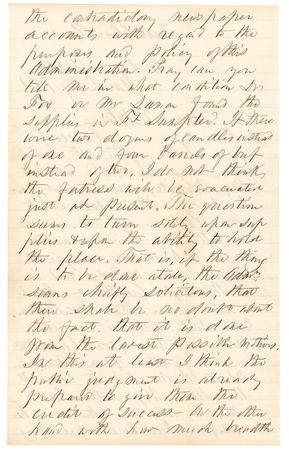 the contradictory newspaper
accounts with regard to the
purposes and policy of this
Administration. Pray, can you
tell me in what condition Dr
Fox or Mr Lamon found the
supplies in Ft Sumpter. If there
were two dozens of candles instead
of one and four barrels of beef
instead of two, I do not think,
the fortress will be evacuated
just at present. The question
seems to turn solely upon sup
plies & upon the ability to hold
the place. That is, if the thing
is to be done at all, the Adm.
seems chiefly solicitous, that
there shall be no doubt about
the fact, that it is done
from the lowest possible motives.
In this at least I think the
public judgment is already
prepared to give them the
credit of success – On the other
hand with how much breadth